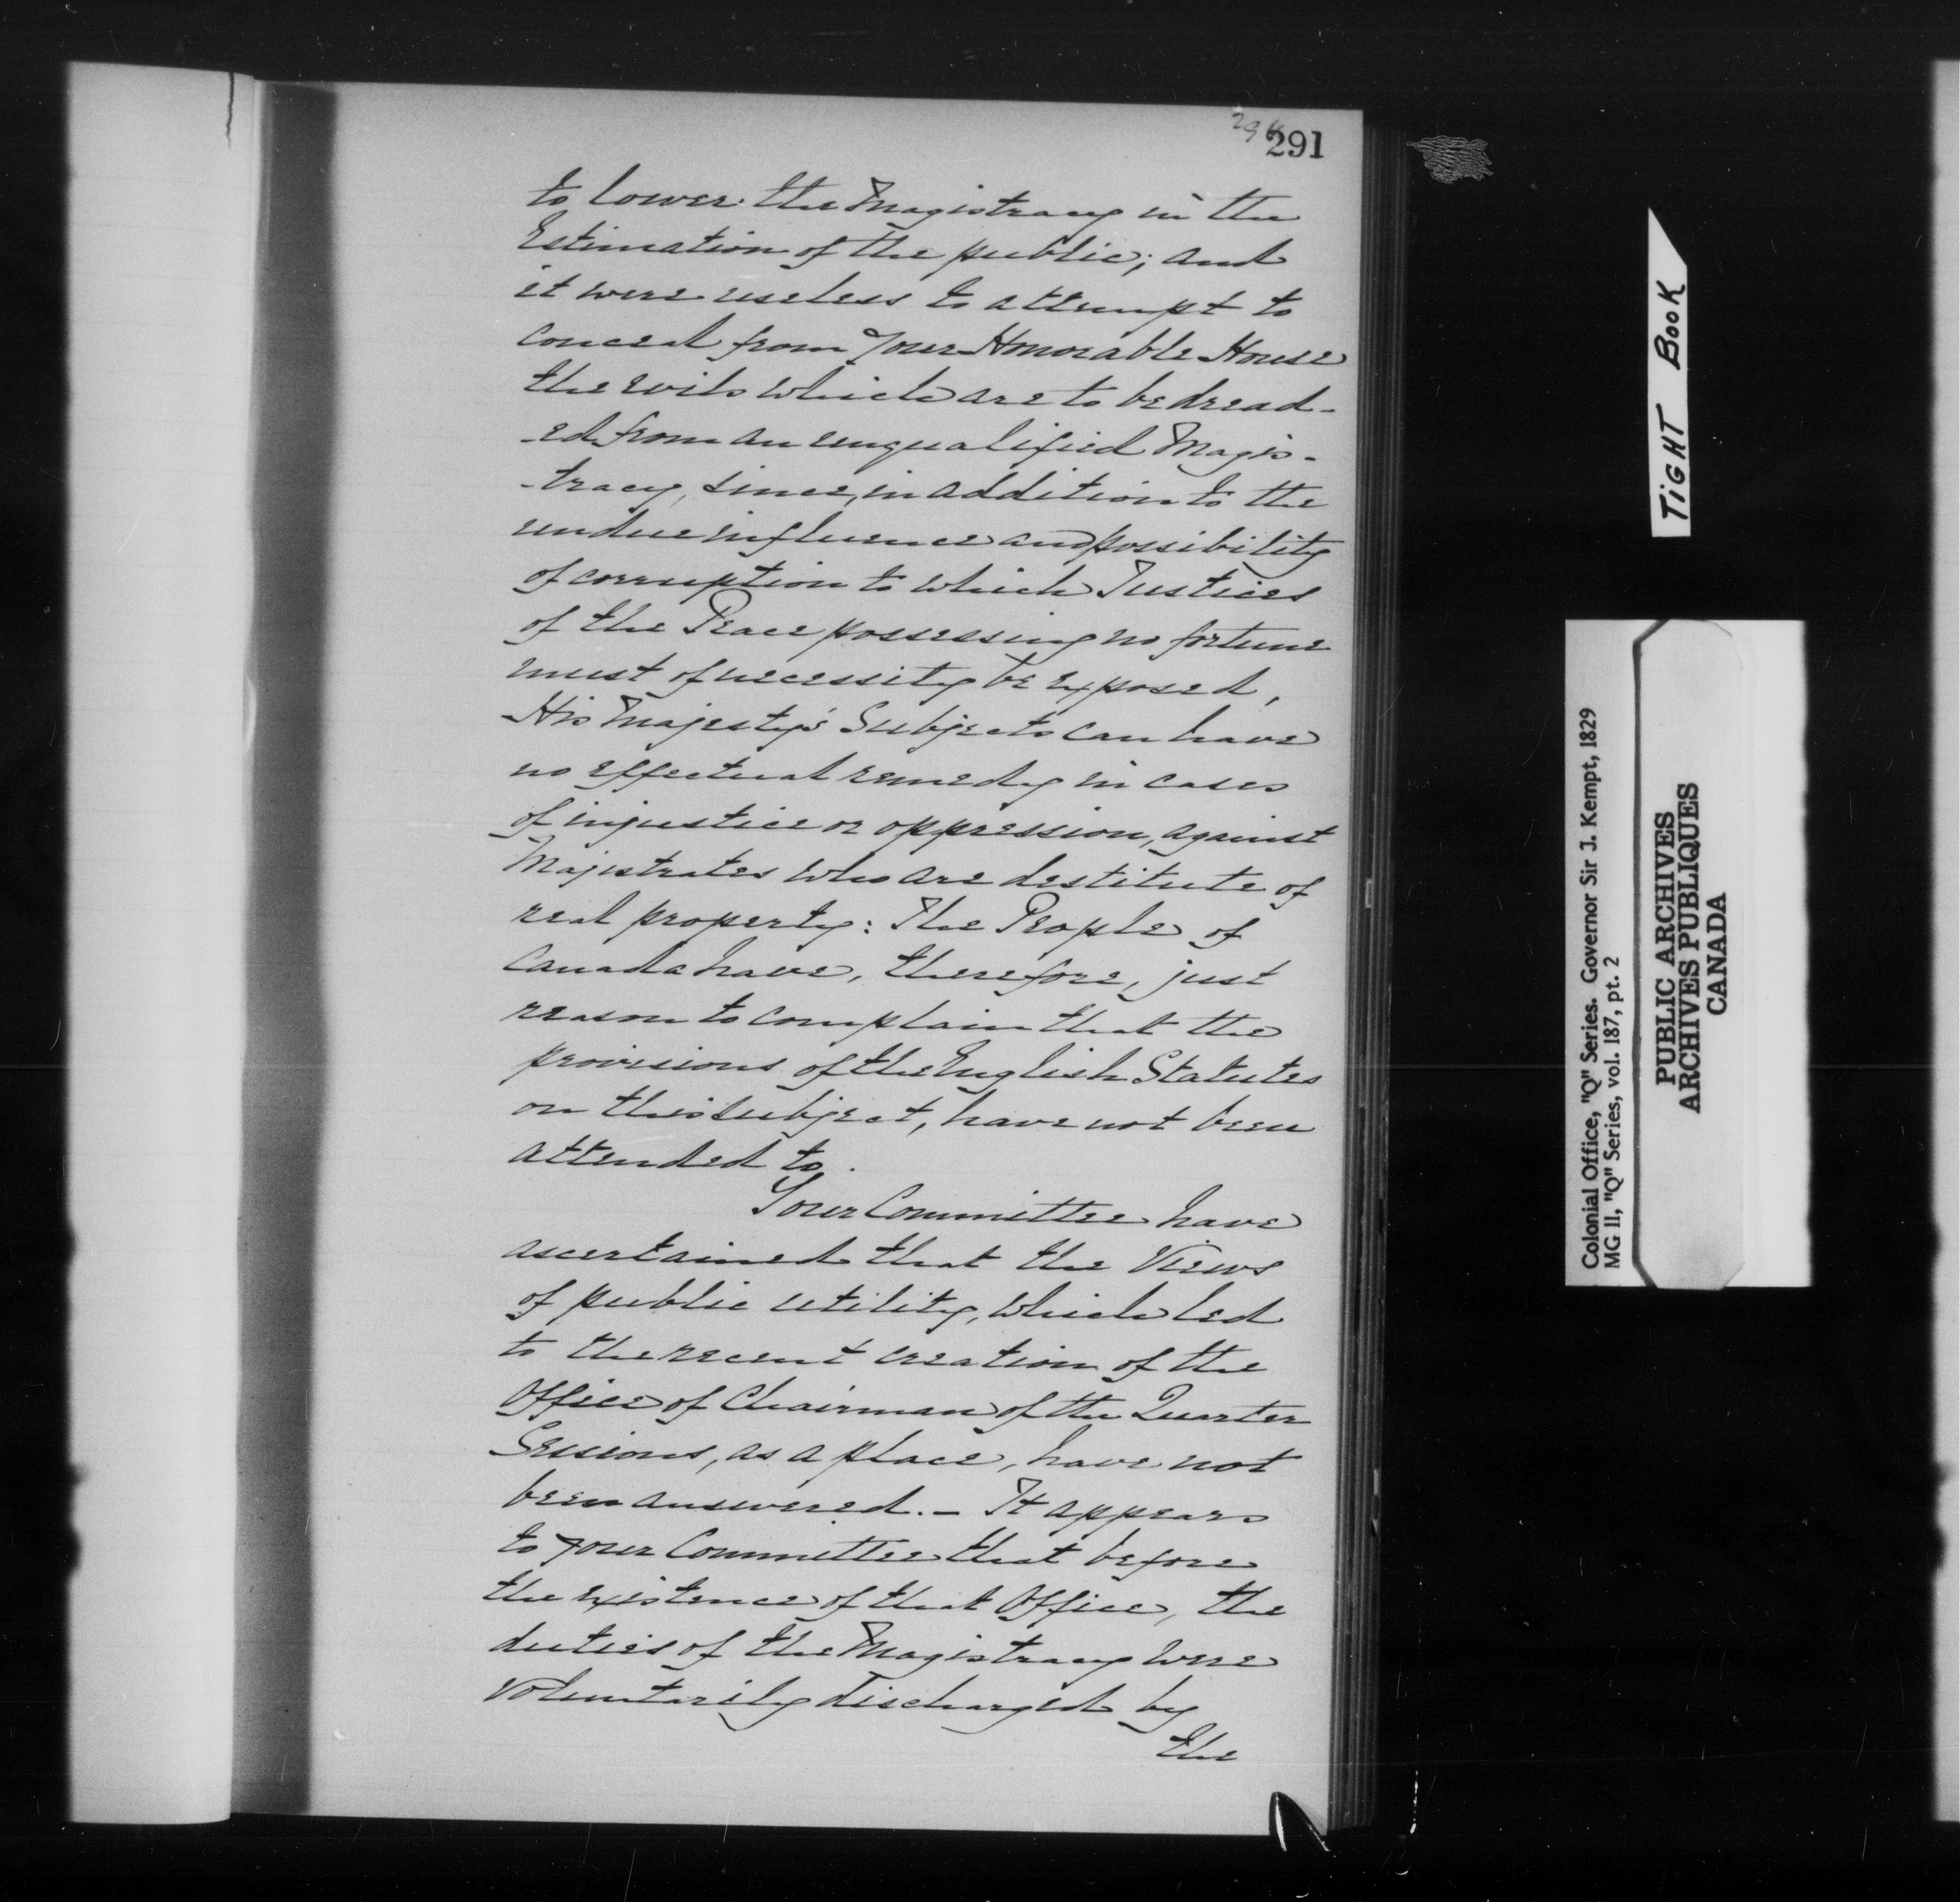 291
to lower the Magistracy in the
Estimation of the public; and
it were useless to attempt to
conceal from your Honorable House
the evils which are to be dread-
-ed from an unqualified Magis-
-tracy, since, in addition to the
undue influence and possibility
of corruption to which Justices
of the Peace possessing no fortune
must of necessity be exposed,
His Majesty's Subjects can have
no effectual remedy in cases
of injustice or oppression, against
Majistrates who are destitute of
real property: The People of
Canada have, therefore, just
reason to complain that the
provisions of the English Statutes
on this subject, have not been
attended to.
Your Committee have
ascertained that the Views
of public utility, which led
to the recent creation of the
Office of Chairman of the Quarter
Sessions, as a place, have not
been answered. – It appears
to your Committee that before
the existence of that Office, the
duties of the Magistracy were
voluntarily discharged by
the
TIGHT BOOK
Colonial Office, "Q" Series. Governor Sir J. Kempt, 1829
MG 11, "Q" Series, vol. 187, pt. 2
PUBLIC ARCHIVES
ARCHIVES PUBLIQUES
CANADA